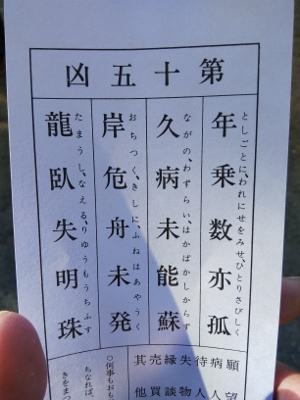 第十五凶
としごとに、われにせをみせ、ひとりさびしく
年乗数亦孤
ながの、わずらい、はかばかしからず
久病未能蘇
おちつく、きしに、ふねはあやうく
岸危舟未発
たまうし、なえる、りゆうもうちふす
龍臥失明珠
願望
病人
待人
失物
縁談
売買
其他
○何事もおも
ちなれば、
きをまつ